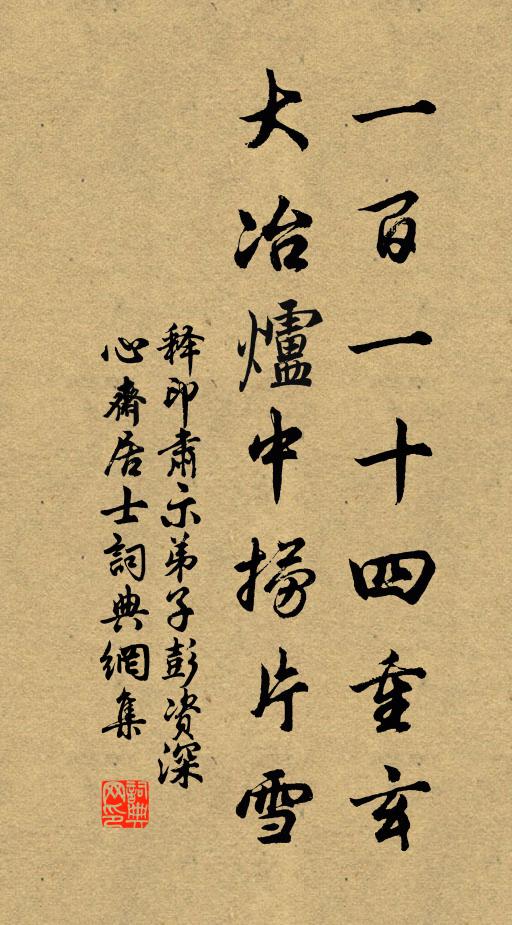 一百一十四重玄
大冶爐中撈片雪
释印肃示弟子彭资深
心齋居士詞典網集
詞典网印